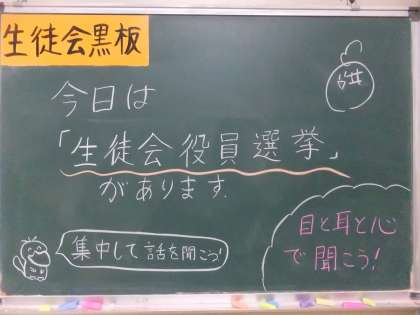 生徒会黒板
今日は
「生徒会役員選挙」
があります.
集中して話を聞こう!
目と耳と心
で聞こう!